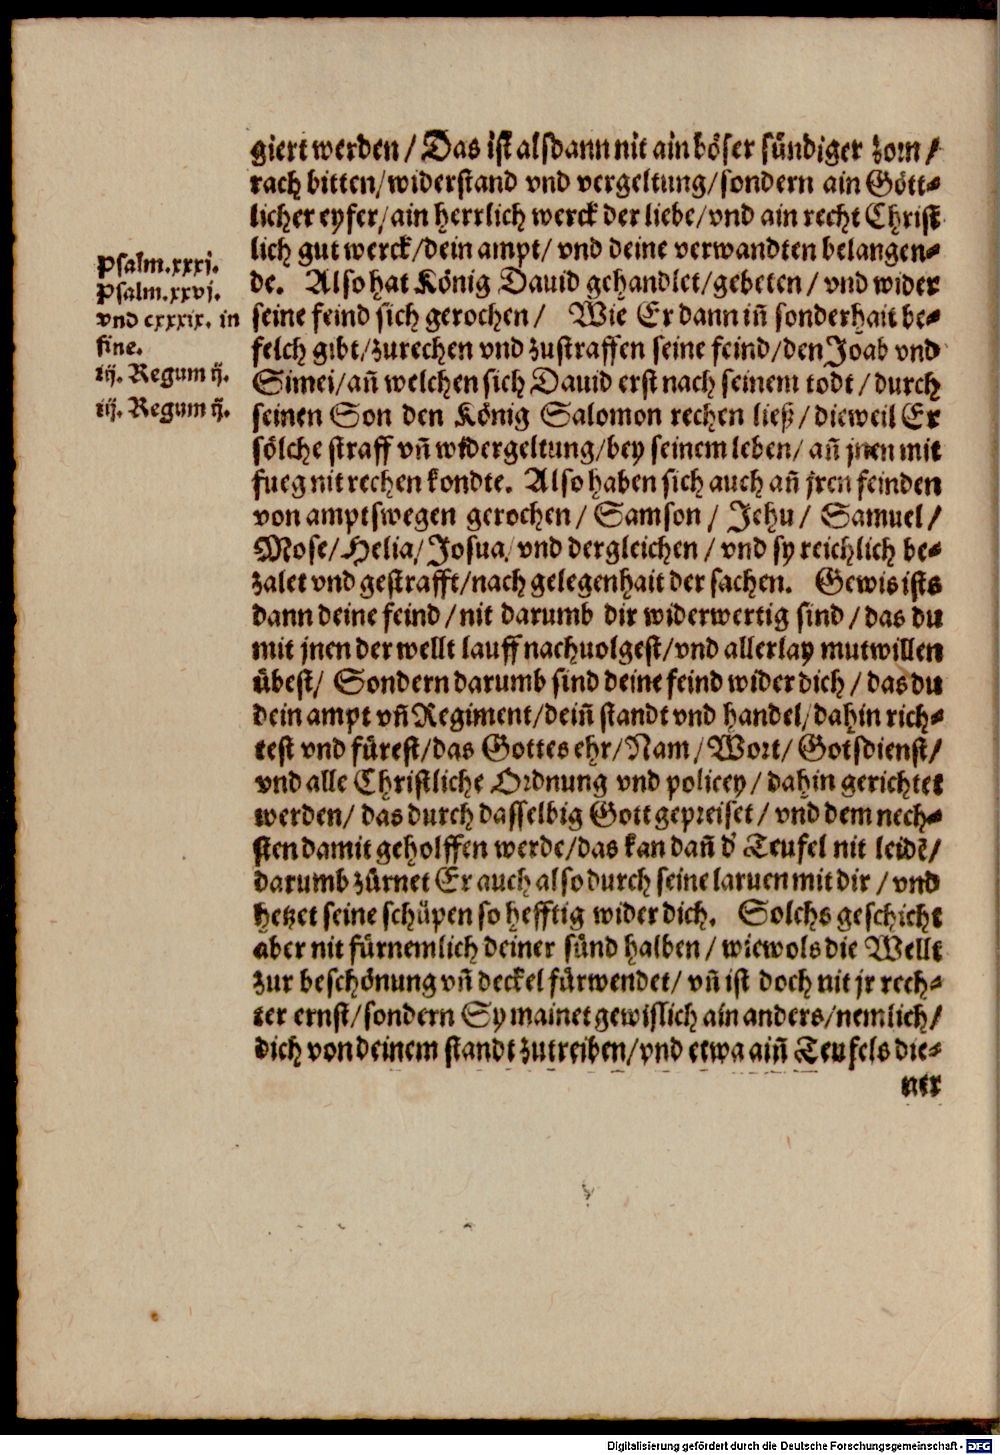 giert werden / Das ist alsdann nit ain böser sündiger zorn /
rach bitten / widerstand vnd vergeltung / sondern ain Gött-
licher eyfer / ain herrlich werck der liebe / vnd ain recht Christ
lich gut werck / dein ampt / vnd deine verwandten belangen-
de. Also hat König Dauid gehandlet / gebeten / vnd wider
seine feind sich gerochen / Wie Er dann iñ sonderhait be-
felch gibt / zurechen vnd zustraffen seine feind / den Joab vnd
Simei / añ welchen sich Dauid erst nach seinem todt / durch
seinen Son den König Salomon rechen ließ / dieweil Er
sölche straff vñ widergeltung / bey seinem leben / añ jnen mit
fueg nit rechen kondte. Also haben sich auch añ jren feinden
von amptswegen gerochen / Samson / Jehu / Samuel /
Mose / Helia / Josua / vnd dergleichen / vnd sy reichlich be-
zalet vnd gestrafft / nach gelegenhait der sachen. Gewis ists
dann deine feind / nit darumb dir widerwertig sind / das du
mit jnen der wellt lauff nachuolgest / vnd allerlay mutwillen
übest / Sondern darumb sind deine feind wider dich / das du
dein ampt vñ Regiment / deiñ standt vnd handel / dahin rich-
test vnd fürest / das Gottes ehr / Nam / Wort / Gotsdienst /
vnd alle Christliche Ordnung vnd policey / dahin gerichtet
werden / das durch dasselbig Gott gepreiset / vnd dem nech-
sten damit geholffen werde / das kan dañ d' Teufel nit leidē /
darumb zürnet Er auch also durch seine laruen mit dir / vnd
hetzet seine schüpen so hefftig wider dich. Solchs geschicht
aber nit fürnemlich deiner sünd halben / wiewols die Wellt
zur beschönung vñ deckel fürwendet / vñ ist doch nit jr rech-
ter ernst / sondern Sy mainet gewißlich ain anders / nemlich /
dich von deinem standt zutreiben / vnd etwa aiñ Teufels die-
ner
Psalm. xxxj.
Psalm. xxvj.
vnd cxxxix. in
fine.
iij. Regum ij.
iij. Regum ij.
Digitalisierung gefördert durch die Deutsche Forschungsgemeinschaft - DFG